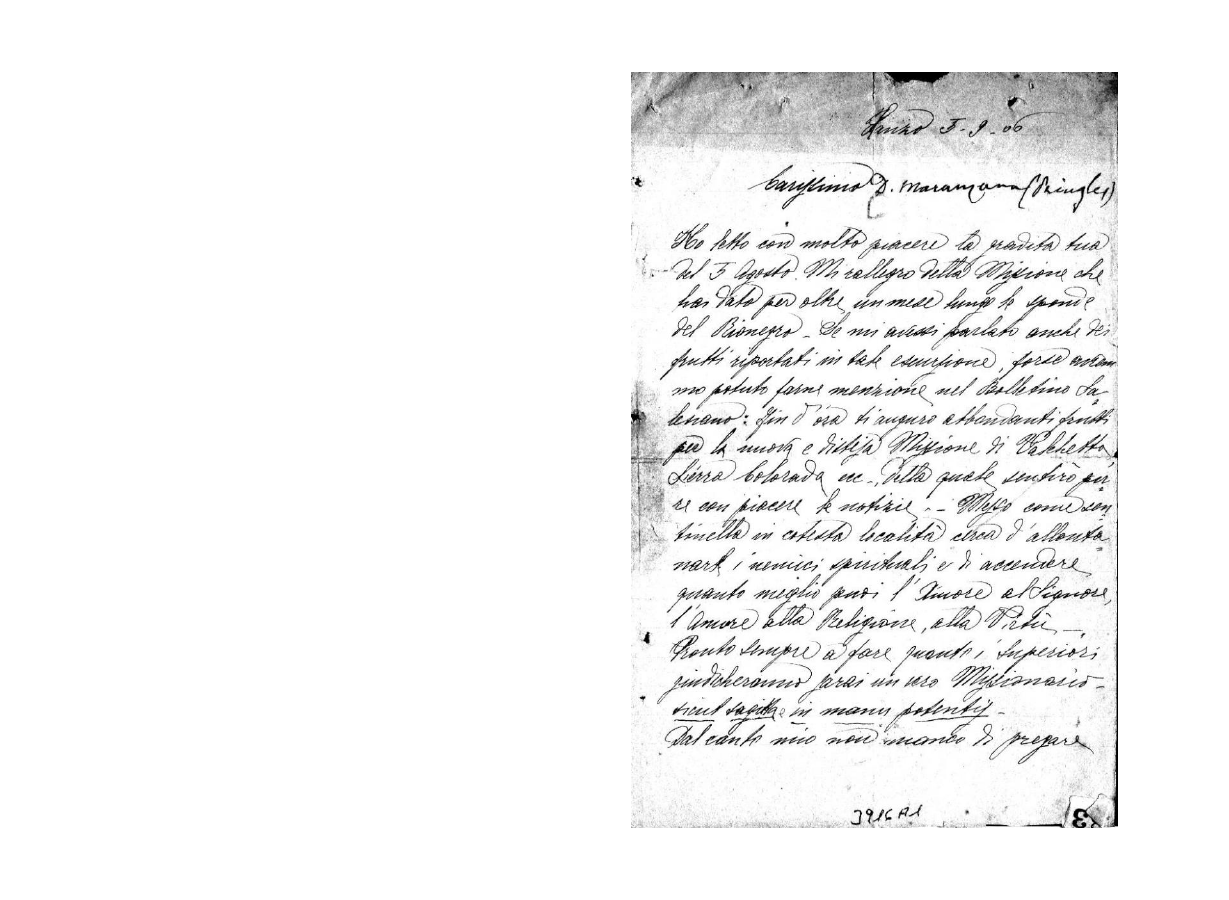 Lanzo 5-9-06
Carissimo D. Maranzana (Pringles)
Ho letto con molto piacere la gradita tua
del 5 Agosto. Mi rallegro della Missione che
hai dato per oltre un mese lungo le sponde
del Rionegro _ Se mi avessi parlato anche dei
frutti riportati in tale escursione, forse avrem
mo potuto farne menzione nel Bollettino Sa-
lesiano: Fin d'ora ti auguro abbondanti frutti
per la nuova e Missione di Valchetta,
Sierra Colorada ecc -, della quale sentirò pu-
re con piacere le notizie . - Messo come sen
tinella in cotesta località cerca d'allonta-
nare i nemici spirituali e di accendere
quanto meglio puoi l'Amore al Signore,
l'Amore alla Religione, alla Virtù -
Pronto sempre a fare quanto i Superiori
giudicheranno sarai un vero Missionario -
sicut sagittae in manu potentis -
Dal canto mio non manco di pregare
3916A1
3